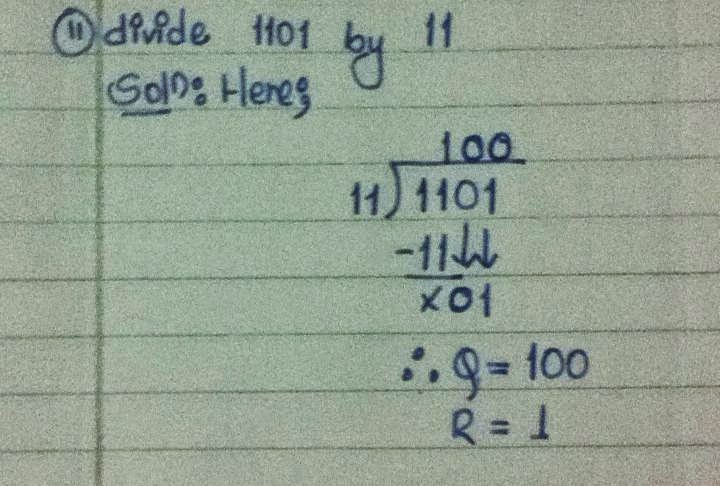 (11) divide 1101 by 11
Soln: Here;
100
11)1101
-11↓↓
×01
∴ Q = 100
R = 1